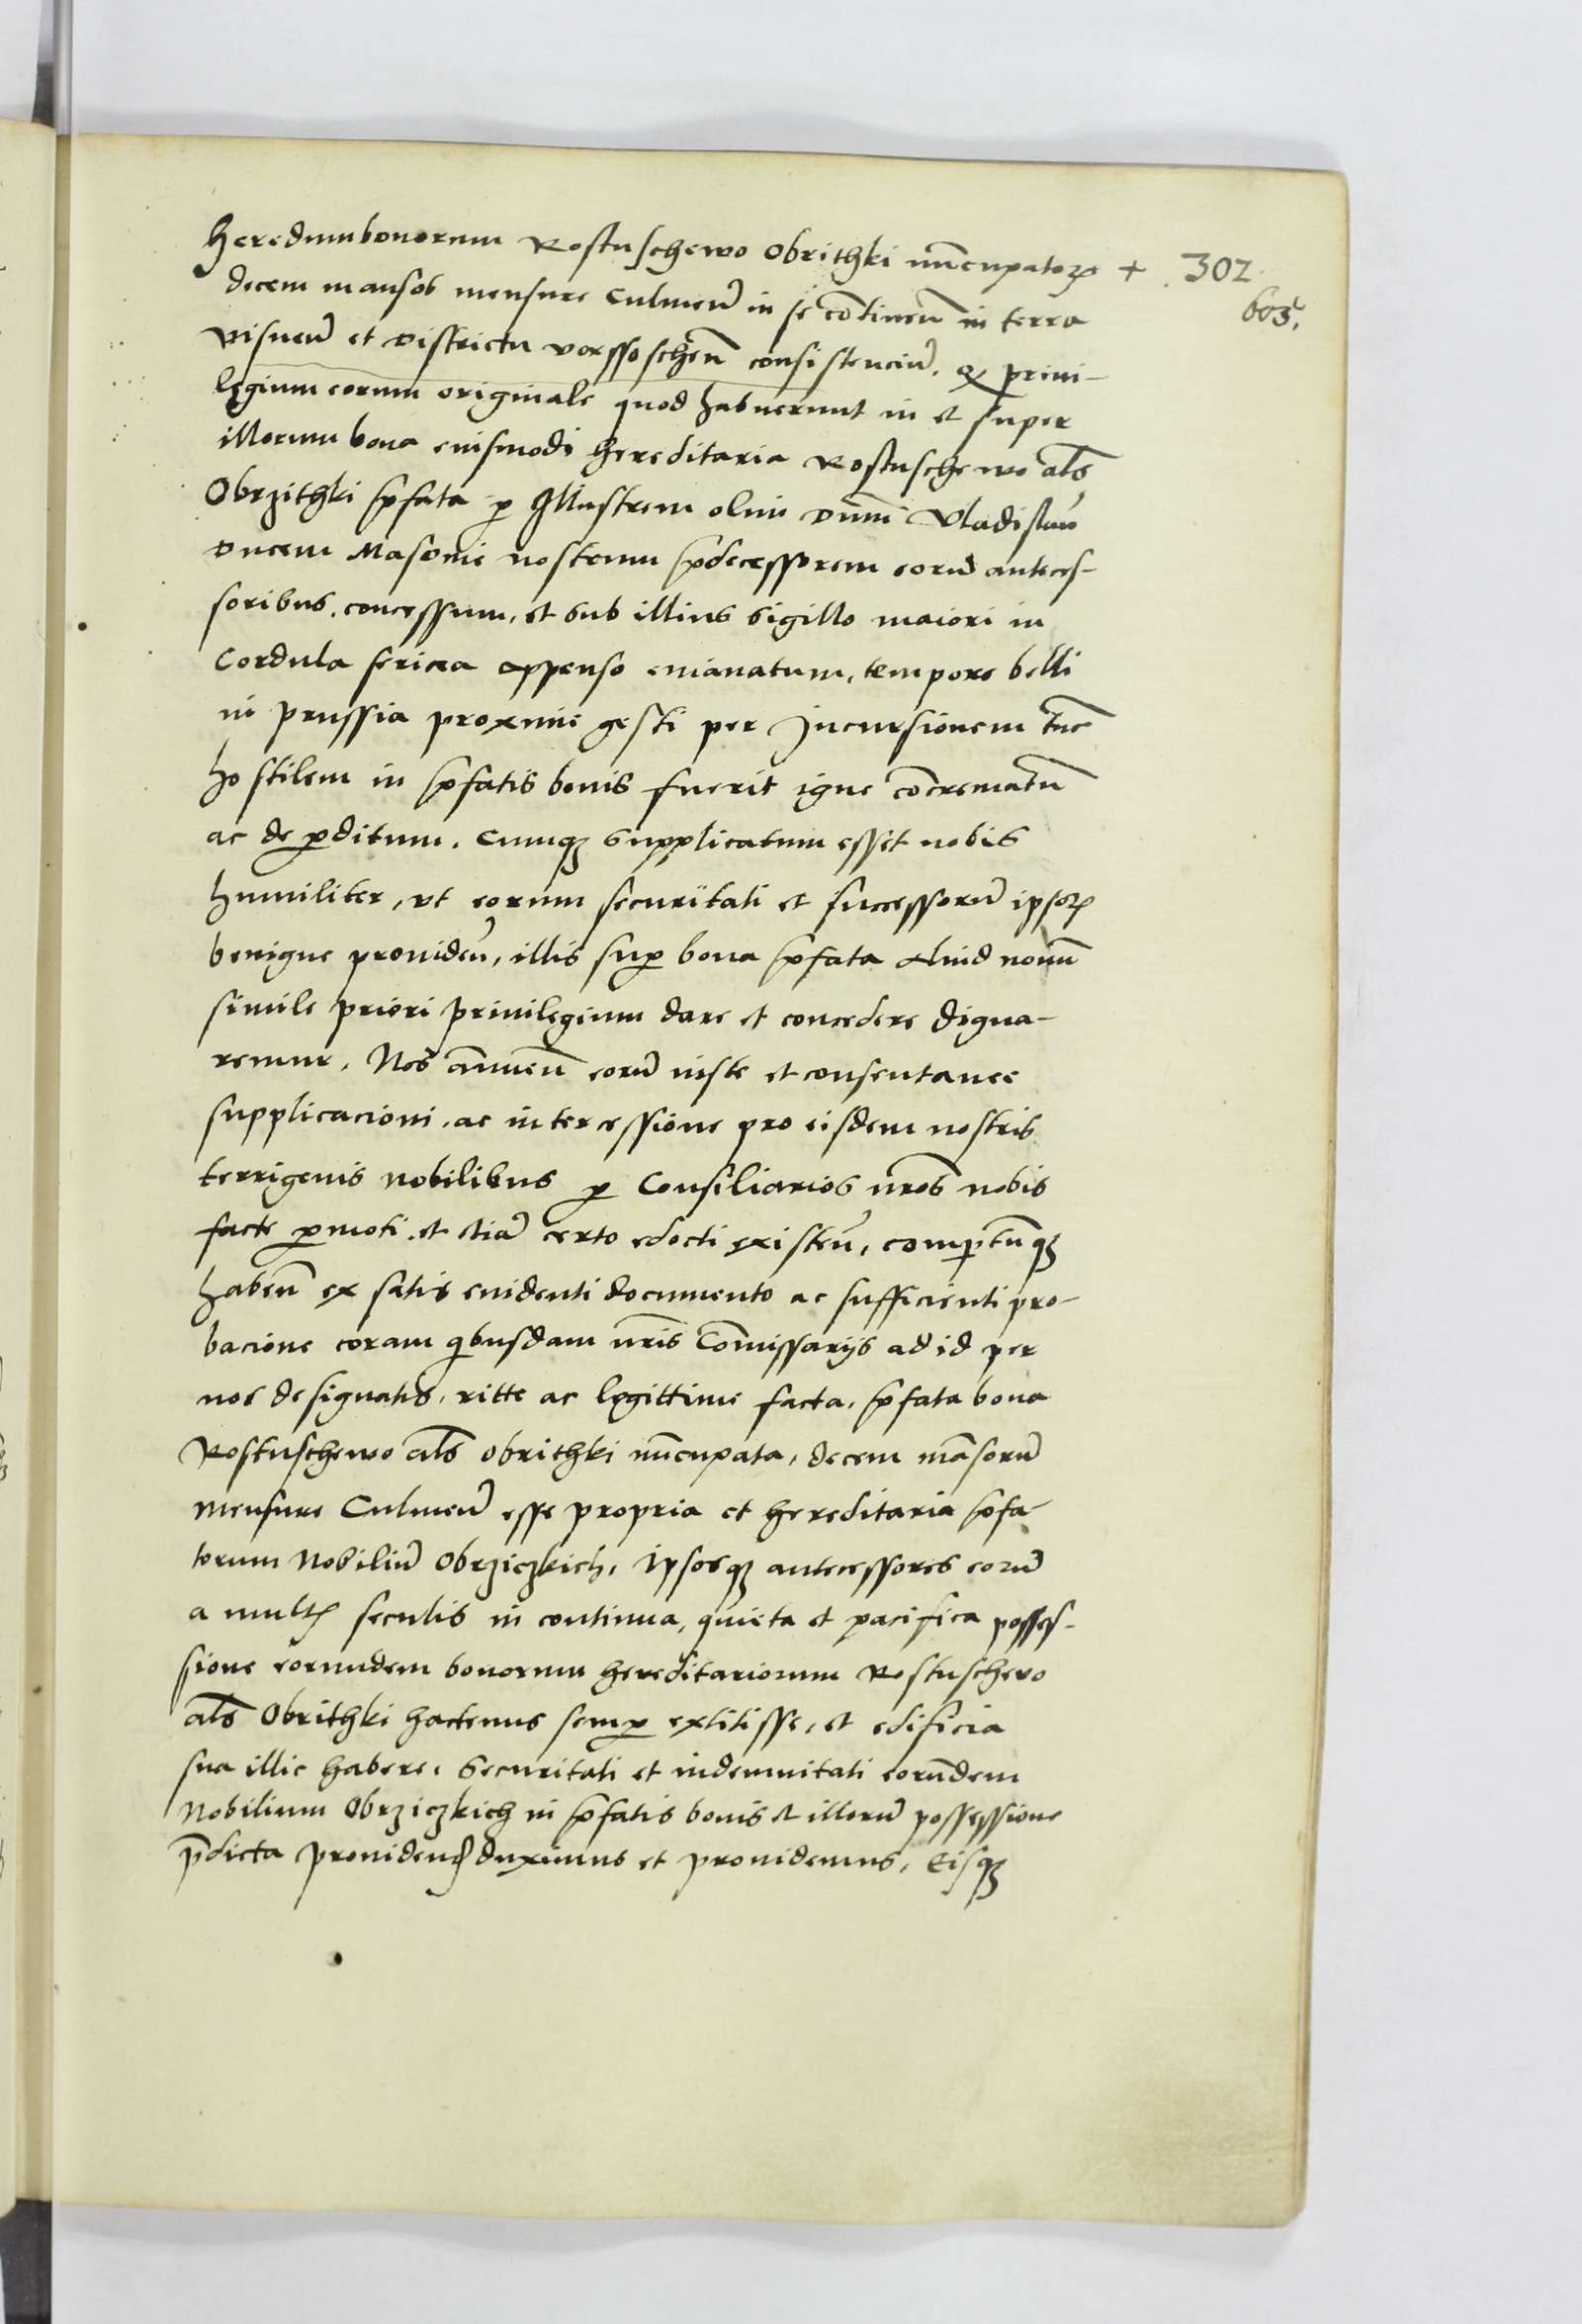 heredum bonorum Rostuschewo Obrithki nūcupatorꝝ + 302
603.
decem mansos mensure Culmen̄ in se cōtinen̄ in terra
Visnen̄ et Districtu vorssoschen̄ consistenciū. Qꝫ priui-
legium eorum originale quod habuerunt in et super
illorum bona eiusmodi hereditaria Rostuschewo als̄
Obrzithki p̄fata ꝑ Illustrem olim Dnm̄ Vladislaū
Ducem Masouie nostrum p̄decessorem eorū anteces-
soribus. concessum, et sub illius sigillo maiori in
Cordula sericea appenso emanatum, tempore belli
in prussia proxime gesti per Incursionem tūc
hostilem in p̄fatis bonis fuerit igne cōcrematū
ac deꝑditum. Cumqꝫ supplicatum esset nobis
humiliter, vt eorum securitati et successorū ipsoꝝ
benigne prouiden̄, illis suꝑ bona p̄fata aliud nouū
simile priori priuilegium dare et concedere digna-
remur. Nos ānuen̄ eorū iuste et consentanee
supplicacioni, ac intercessione pro eisdem nostris
terrigenis nobilibus ꝑ Consiliarios nr̄os nobis
facte ꝑmoti. et etiā certo edocti existen̄, comꝑtūqꝫ
haben̄ ex satis euidenti documento ac sufficienti pro-
bacione coram qibusdam nr̄is Com̄issarijs ad id per
nos designatis, ritte ac legittime facta, p̄fata bona
Rostuschewo als̄ Obrithki nūcupata, decem māsorū
mensure Culmen̄ esse propria et hereditaria p̄fa-
torum Nobiliū Obrziczkich, ipsosqꝫ antecessores eorū
a multꝭ seculis in continua, quieta et pacifica posses-
sione eorumdem bonorum hereditariorum Rostuschewo
als̄ Obrithki hactenus semꝑ extitisse, et edificia
sua illic habere, Securitati et indemnitati eorūdem
Nobilium Obrziczkich in p̄fatis bonis et illorū possessione
p̄dicta prouidenꝭ duximus et prouidemus, Eisqꝫ